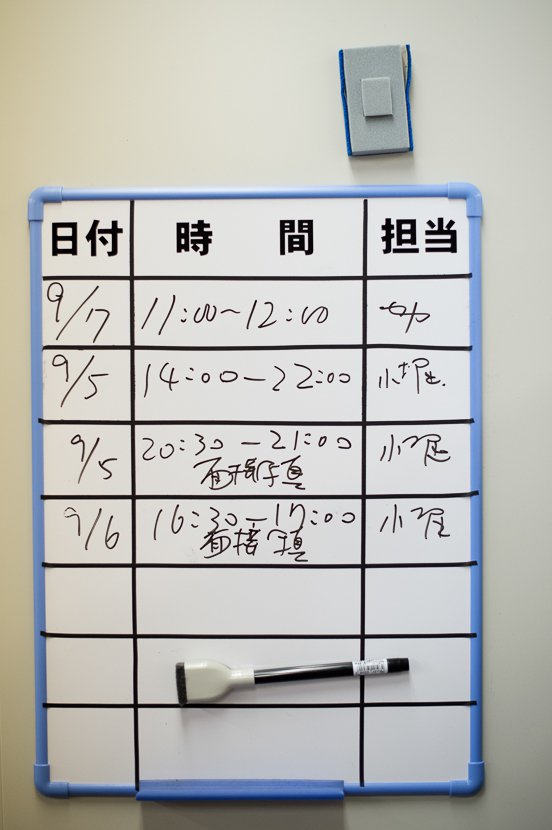 日付 時間 担当
9/17 11:00〜12:00
9/5 14:00-22:00 小堀
9/5 20:30-21:00 小堀
面接写真
9/6 16:30-17:00 小堀
面接写真